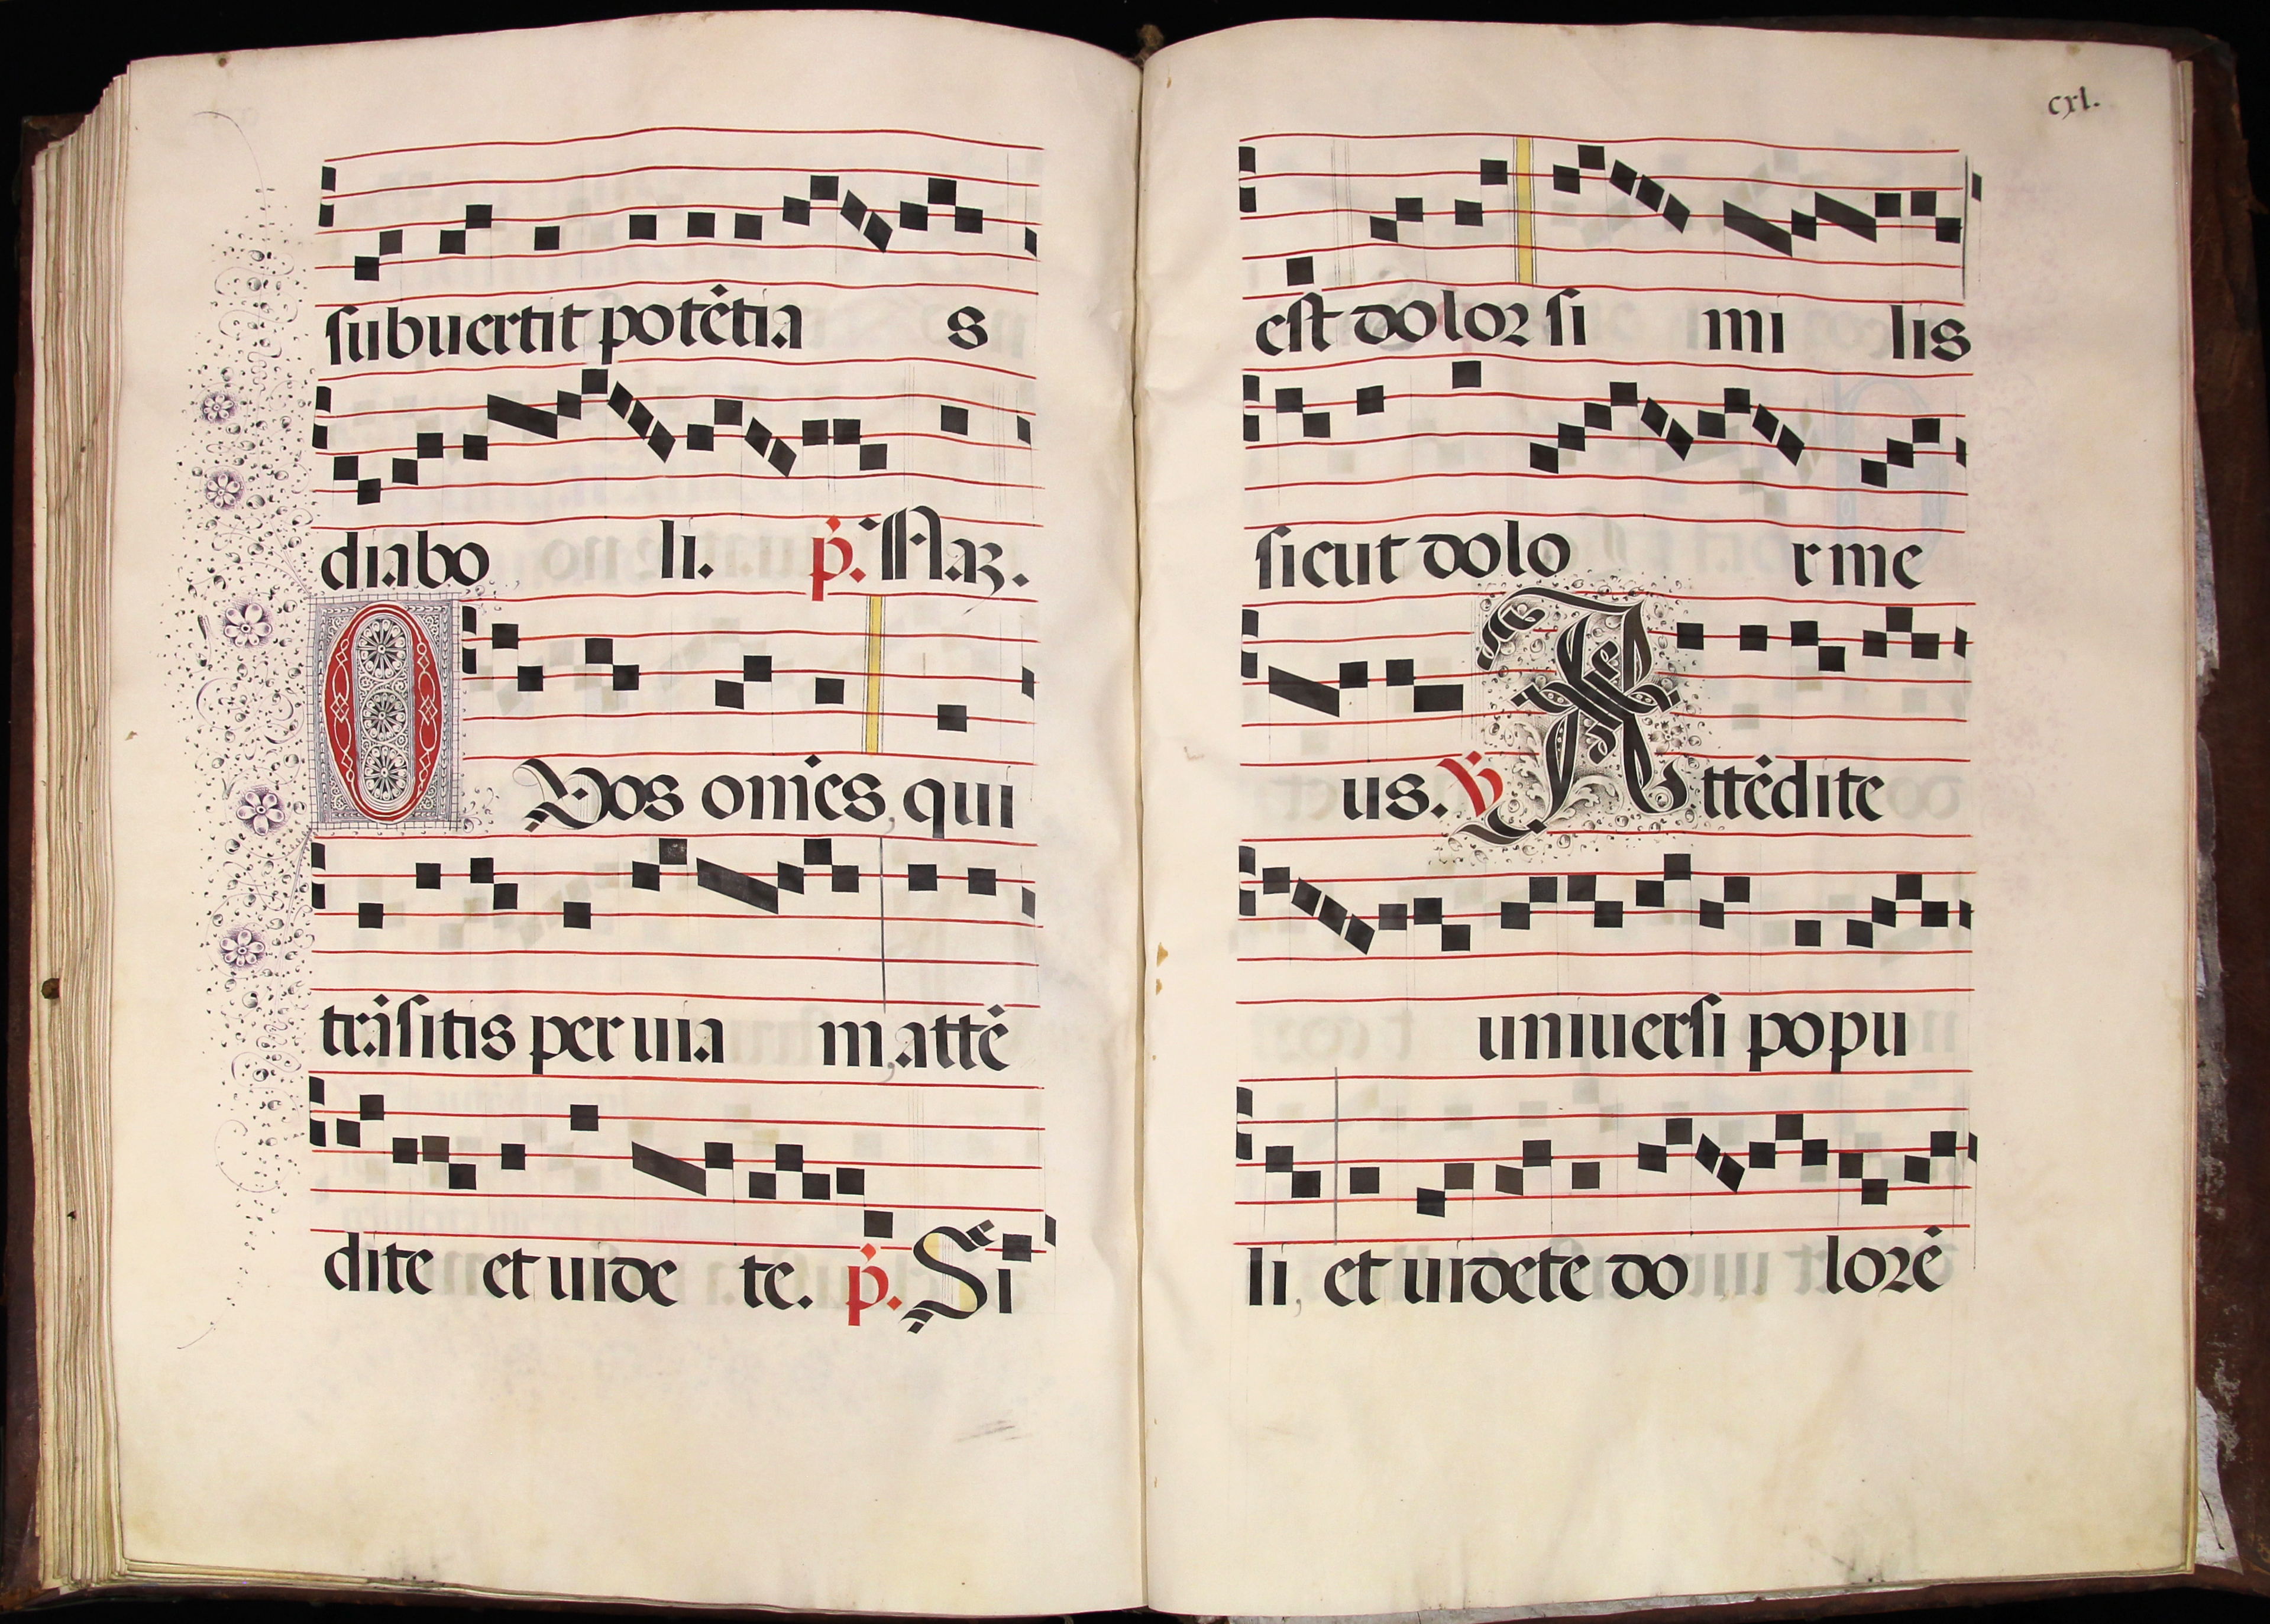 subuertit potẽtia s
diabo li. p. Az.
O Vos om̃es, qui
trãsitis per uia m, attẽ
dite et uide te. p. Si
cxl.
est dolor si mi lis
sicut dolo r me
us. V Attẽdite
uniuersi popu
li, et uidete do lorẽ